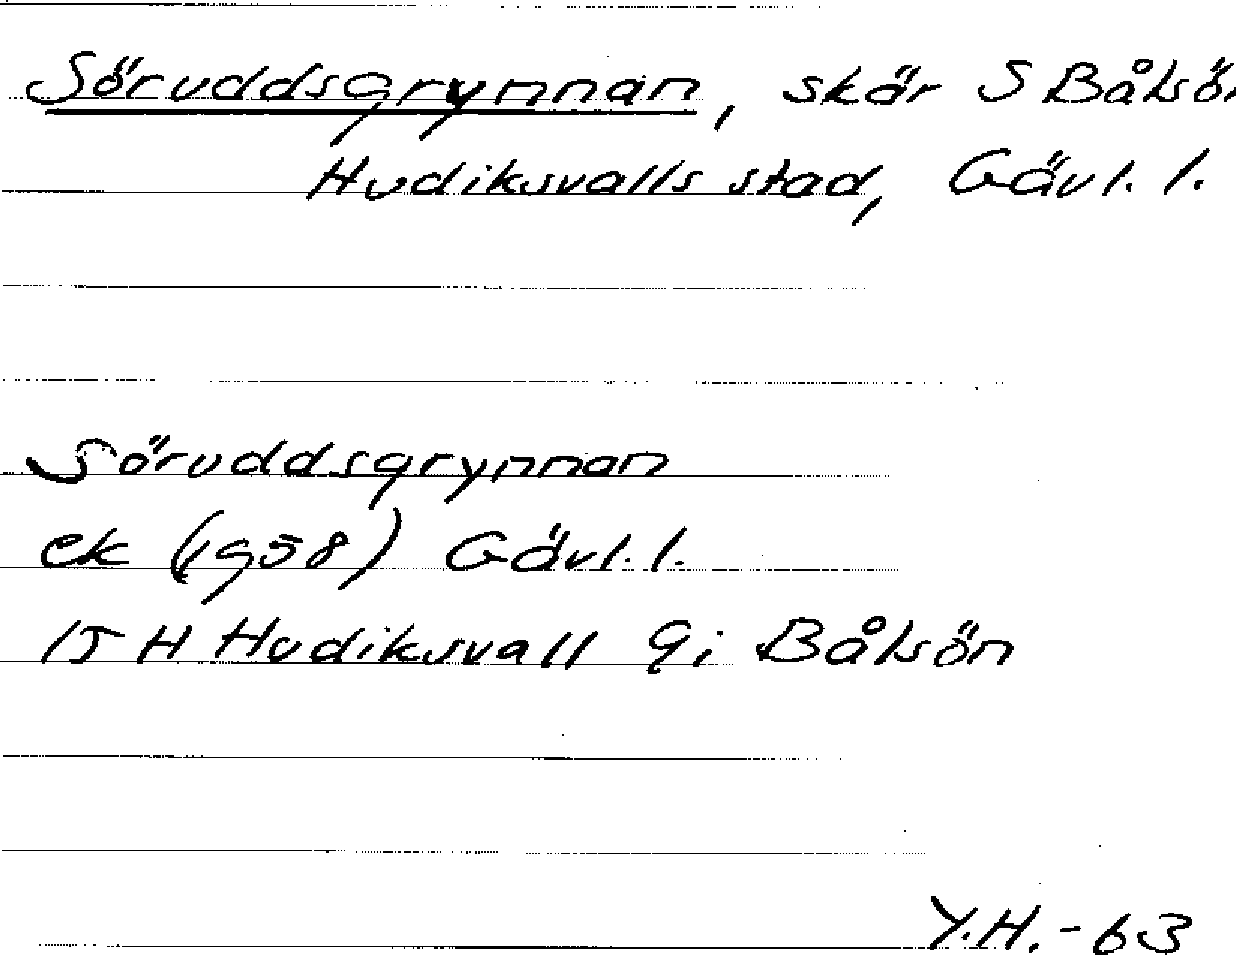 Söruddsgrynnan, skär S Bålsö.
Hudiksvalls stad, Gävl. l.
Söruddsgrynnan
ek (1958) Gävl. l.
15 H Hudiksvall 9i Bålsön
Y.H. - 63